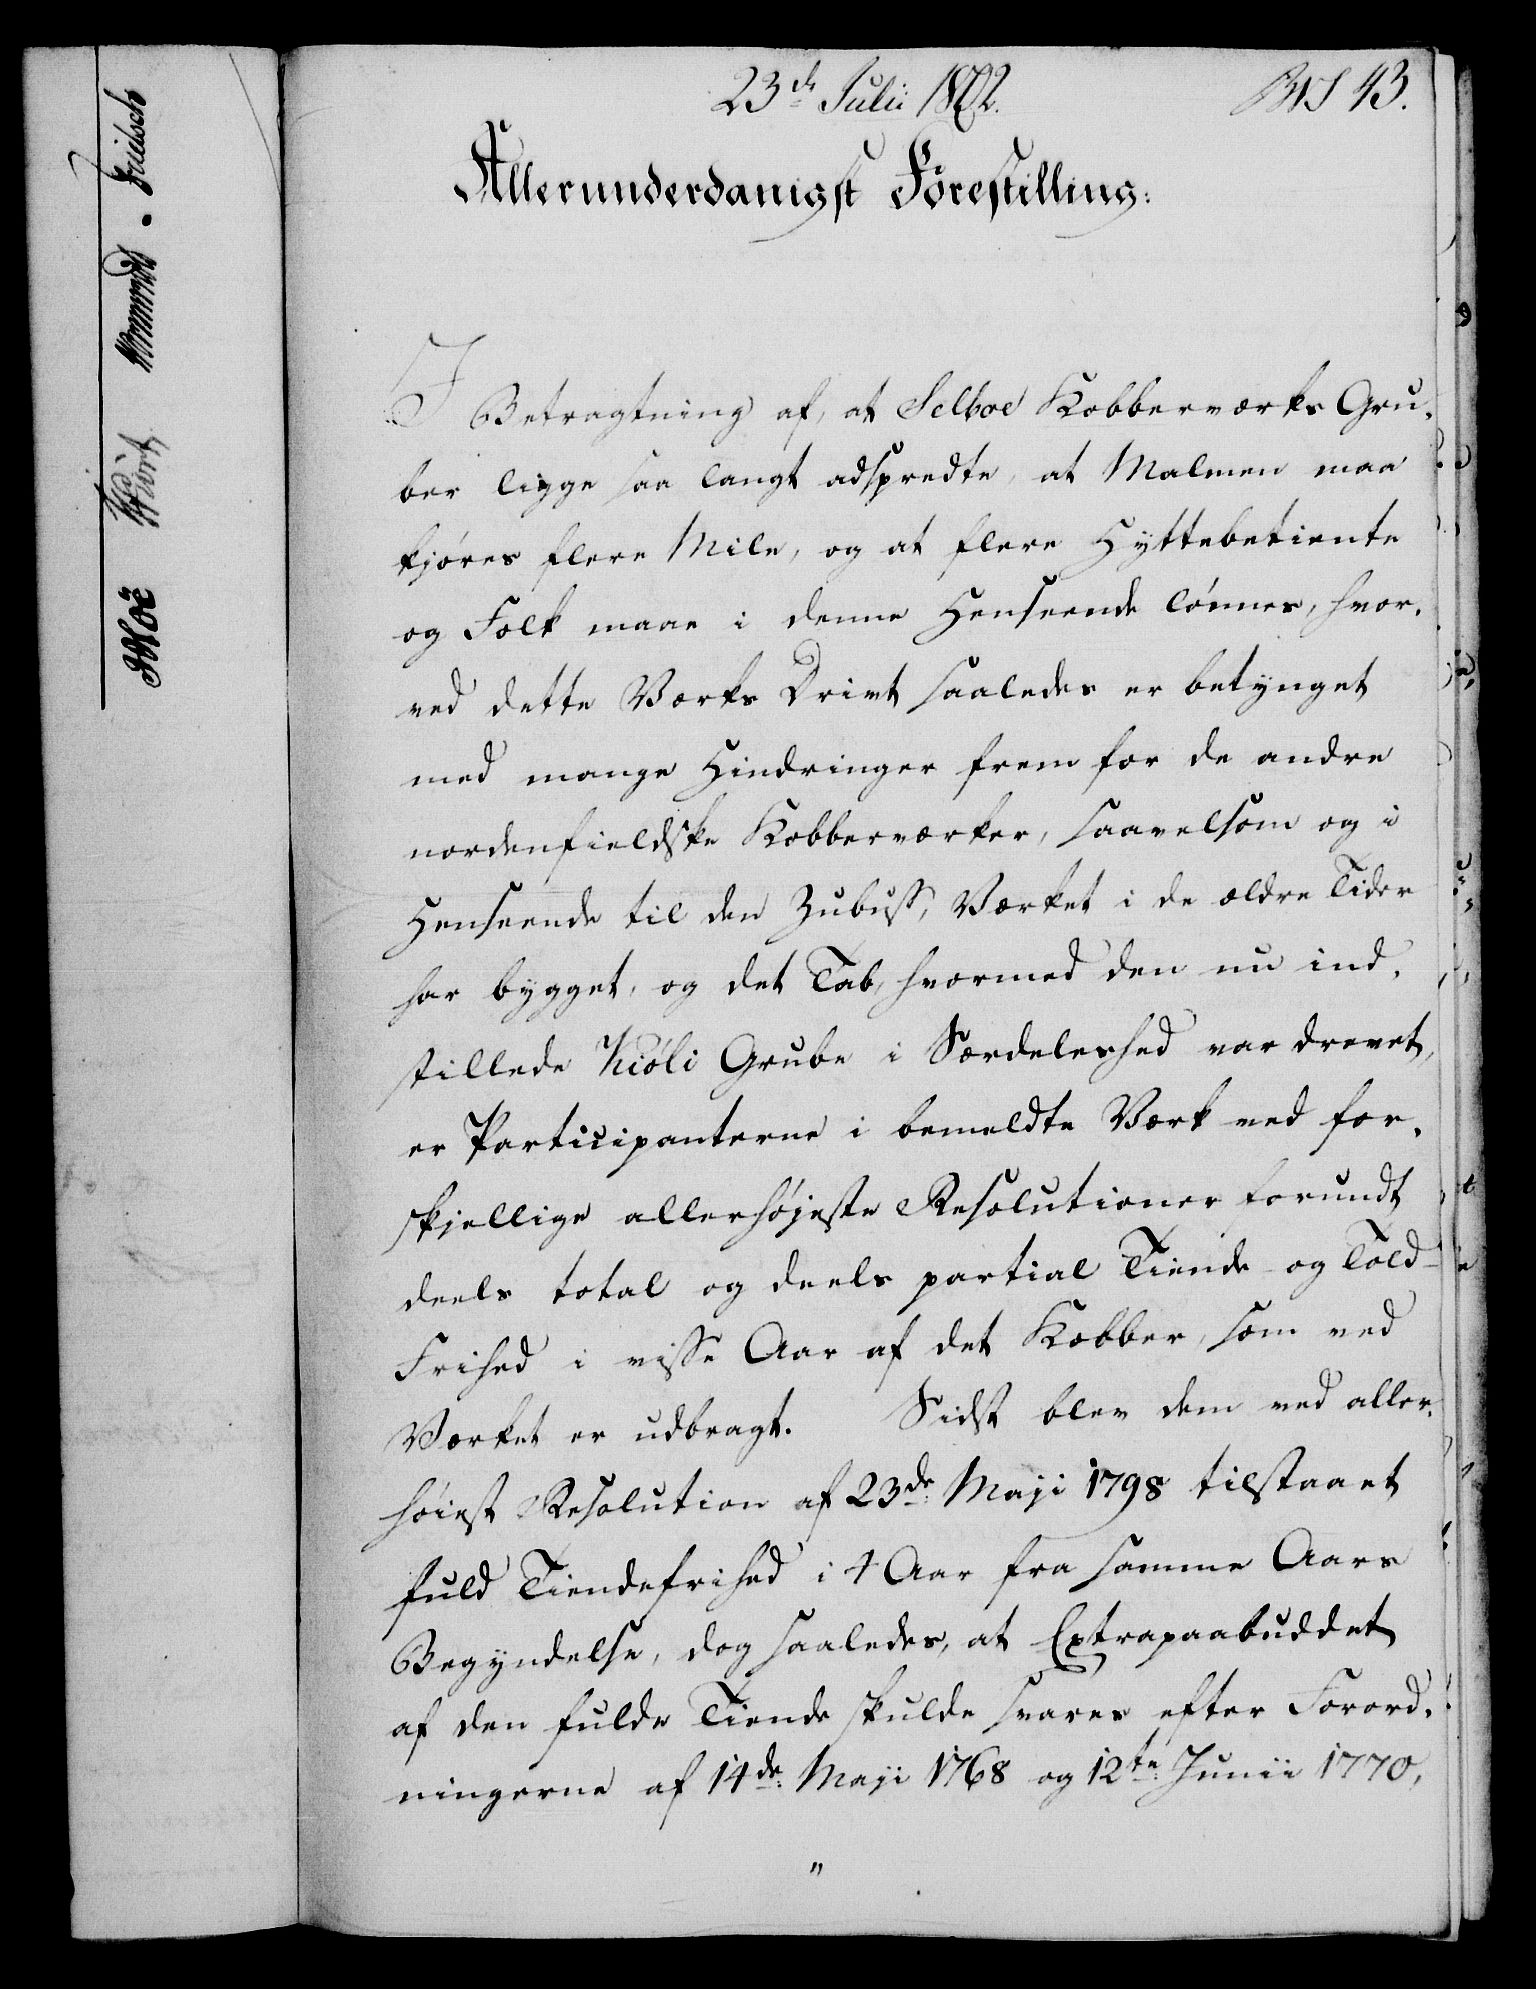 23de Julii 1802.
43.
Allerunderdanigst Forestilling:
I Betragtning af, at Selboe Kobberværks Gru-
ber ligge saa langt adspredte, at Malmen maa
kjøres flere Mile, og at flere Hyttebetiente
og Folk maae i denne Henseende lønnes, hvor-
ved dette Værks Drivt saaledes er betynget
med mange Hindringer frem for de andre
nordenfieldske Kobberværker, saavelsom og i
Henseende til den Zubuss, Værket i de ældre Tider
har bygget, og det Tab, hvormed den nu ind-
stillede Kiöli Grube i Særdeleshed var drevet,
er Participanterne i bemeldte Værk ved for-
skjellige allerhøjeste Resolutioner forundt
deels total og deels partial Tiende- og Told-
Frihed i visse Aar af det Kobber, som ved
Værket er udbragt. Sidst blev dem ved aller-
høiest Resolution af 23de Maji 1798 tilstaaet
fuld Tiendefrihed i 4 Aar fra samme Aars
Begyndelse, dog saaledes, at Extrapaabuddet
af den fulde Tiende skulde svares efter Forord-
ningerne af 14de Maji 1768 og 12te Junii 1770,
"